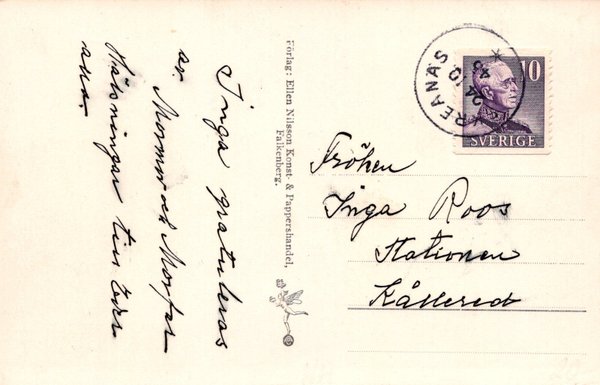 Inga gratuleras
av Mormor och Morfar
Hälsningar till Eder
alla.
Förlag: Ellen Nilsson Konst- & Pappershandel,
Falkenberg.
VREANÄS
24 10
43
10
SVERIGE
Fröken
Inga Roos
Stationen
Kållered